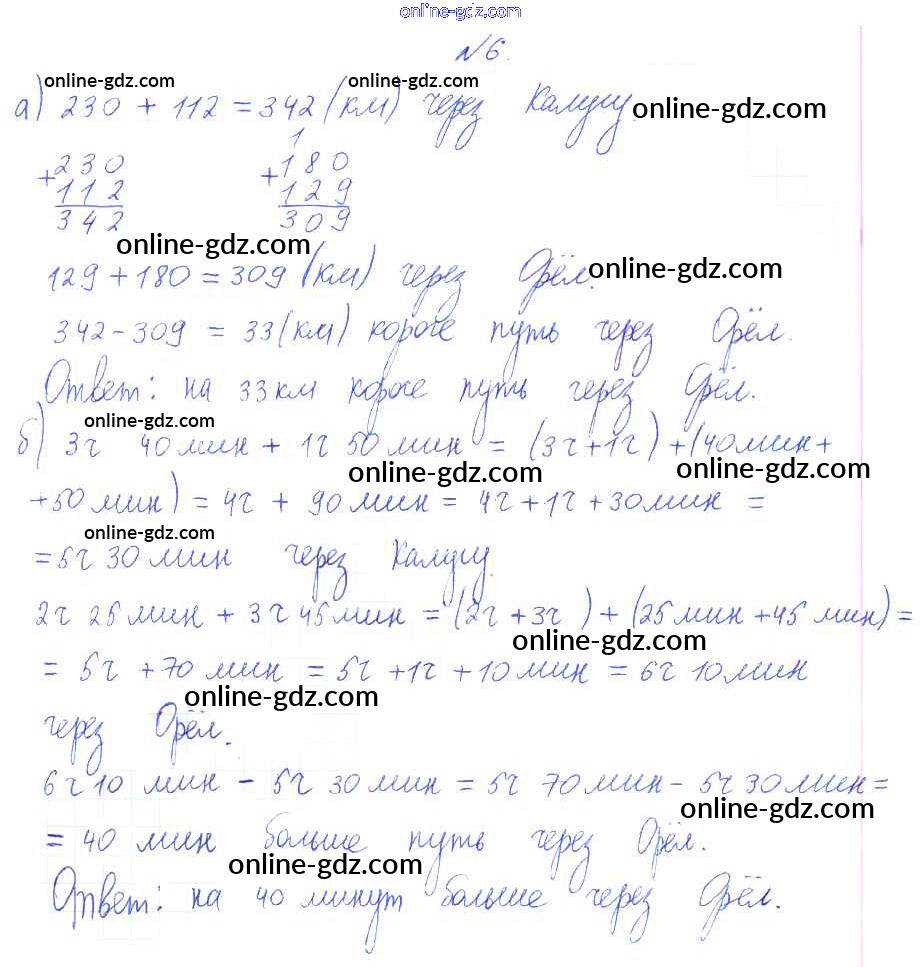 online-gdz.com
№6.
online-gdz.com online-gdz.com
а) 230 + 112 = 342 (км) через Калугу. online-gdz.com
1
+230 +180
112 129
342 309
online-gdz.com
129 + 180 = 309 (км) через Орёл. online-gdz.com
342 - 309 = 33 (км) короче путь через Орёл.
Ответ: на 33 км короче путь через Орёл.
online-gdz.com
б) 3ч 40 мин + 1ч 50 мин = (3ч + 1ч) + (40 мин +
online-gdz.com online-gdz.com
+ 50 мин) = 4ч + 90 мин = 4ч + 1ч + 30 мин =
online-gdz.com
= 5ч 30 мин через Калугу.
2ч 25 мин + 3ч 45 мин = (2ч + 3ч) + (25 мин + 45 мин) =
online-gdz.com
= 5ч + 70 мин = 5ч + 1ч + 10 мин = 6ч 10 мин
online-gdz.com
через Орёл.
6ч 10 мин - 5ч 30 мин = 5ч 70 мин - 5ч 30 мин =
online-gdz.com
= 40 мин больше путь через Орёл.
online-gdz.com
Ответ: на 40 минут больше через Орёл.